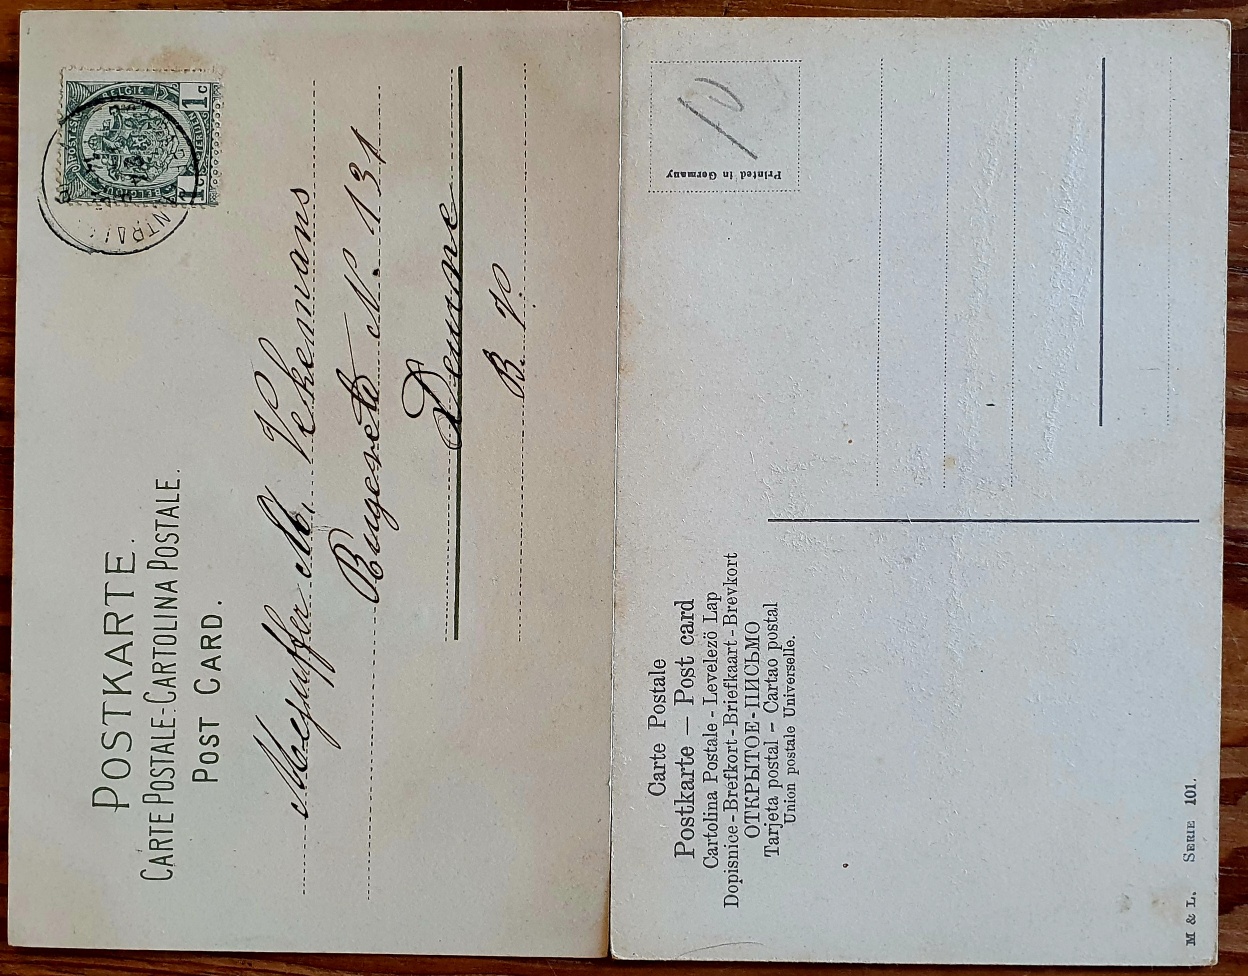 POSTKARTE.
CARTE POSTALE-CARTOLINA POSTALE.
POST CARD.
BELGIE
BELGIQUE
1c
1c
Mejuffer M. Vekemans
N. 131
Deurne
B. V.
Carte Postale
Postkarte — Post card
Cartolina Postale - Levelező Lap
Dopisnice - Brefkort - Briefkaart - Brevkort
ОТКРЫТОЕ-ПИСЬМО
Tarjeta postal - Cartao postal
Union postale Universelle.
Printed in Germany
10
M & L. SERIE 101.